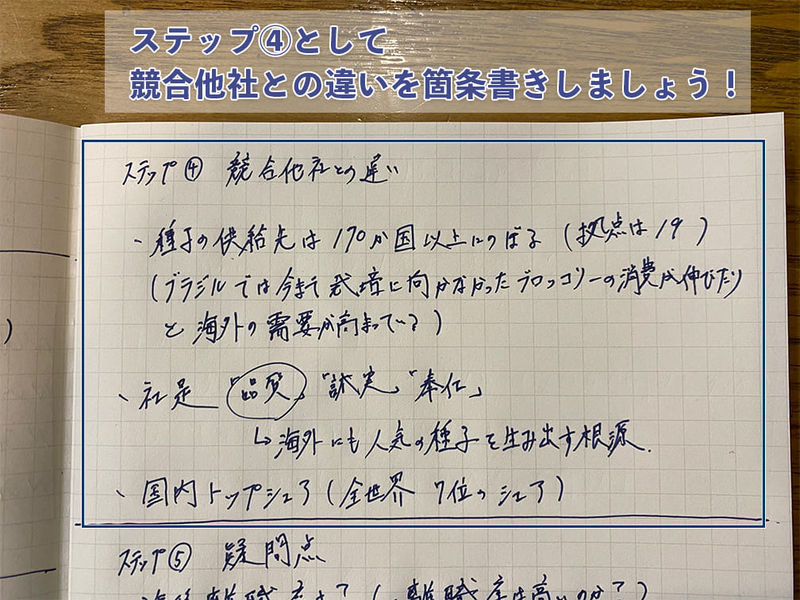 ステップ④として
競合他社との違いを箇条書きしましょう！
ステップ④ 競合他社との違い
・種子の供給先は170か国以上にのぼる (拠点は19)
(ブラジルでは今まで栽培に向かなかったブロッコリーの消費が伸びたり
と海外の需要が高まっている)
・社是 「品質」「誠実」「奉仕」
↳海外にも人気の種子を生み出す根源.
・国内トップシェア (全世界 7位のシェア)
ステップ⑤ 疑問点
)